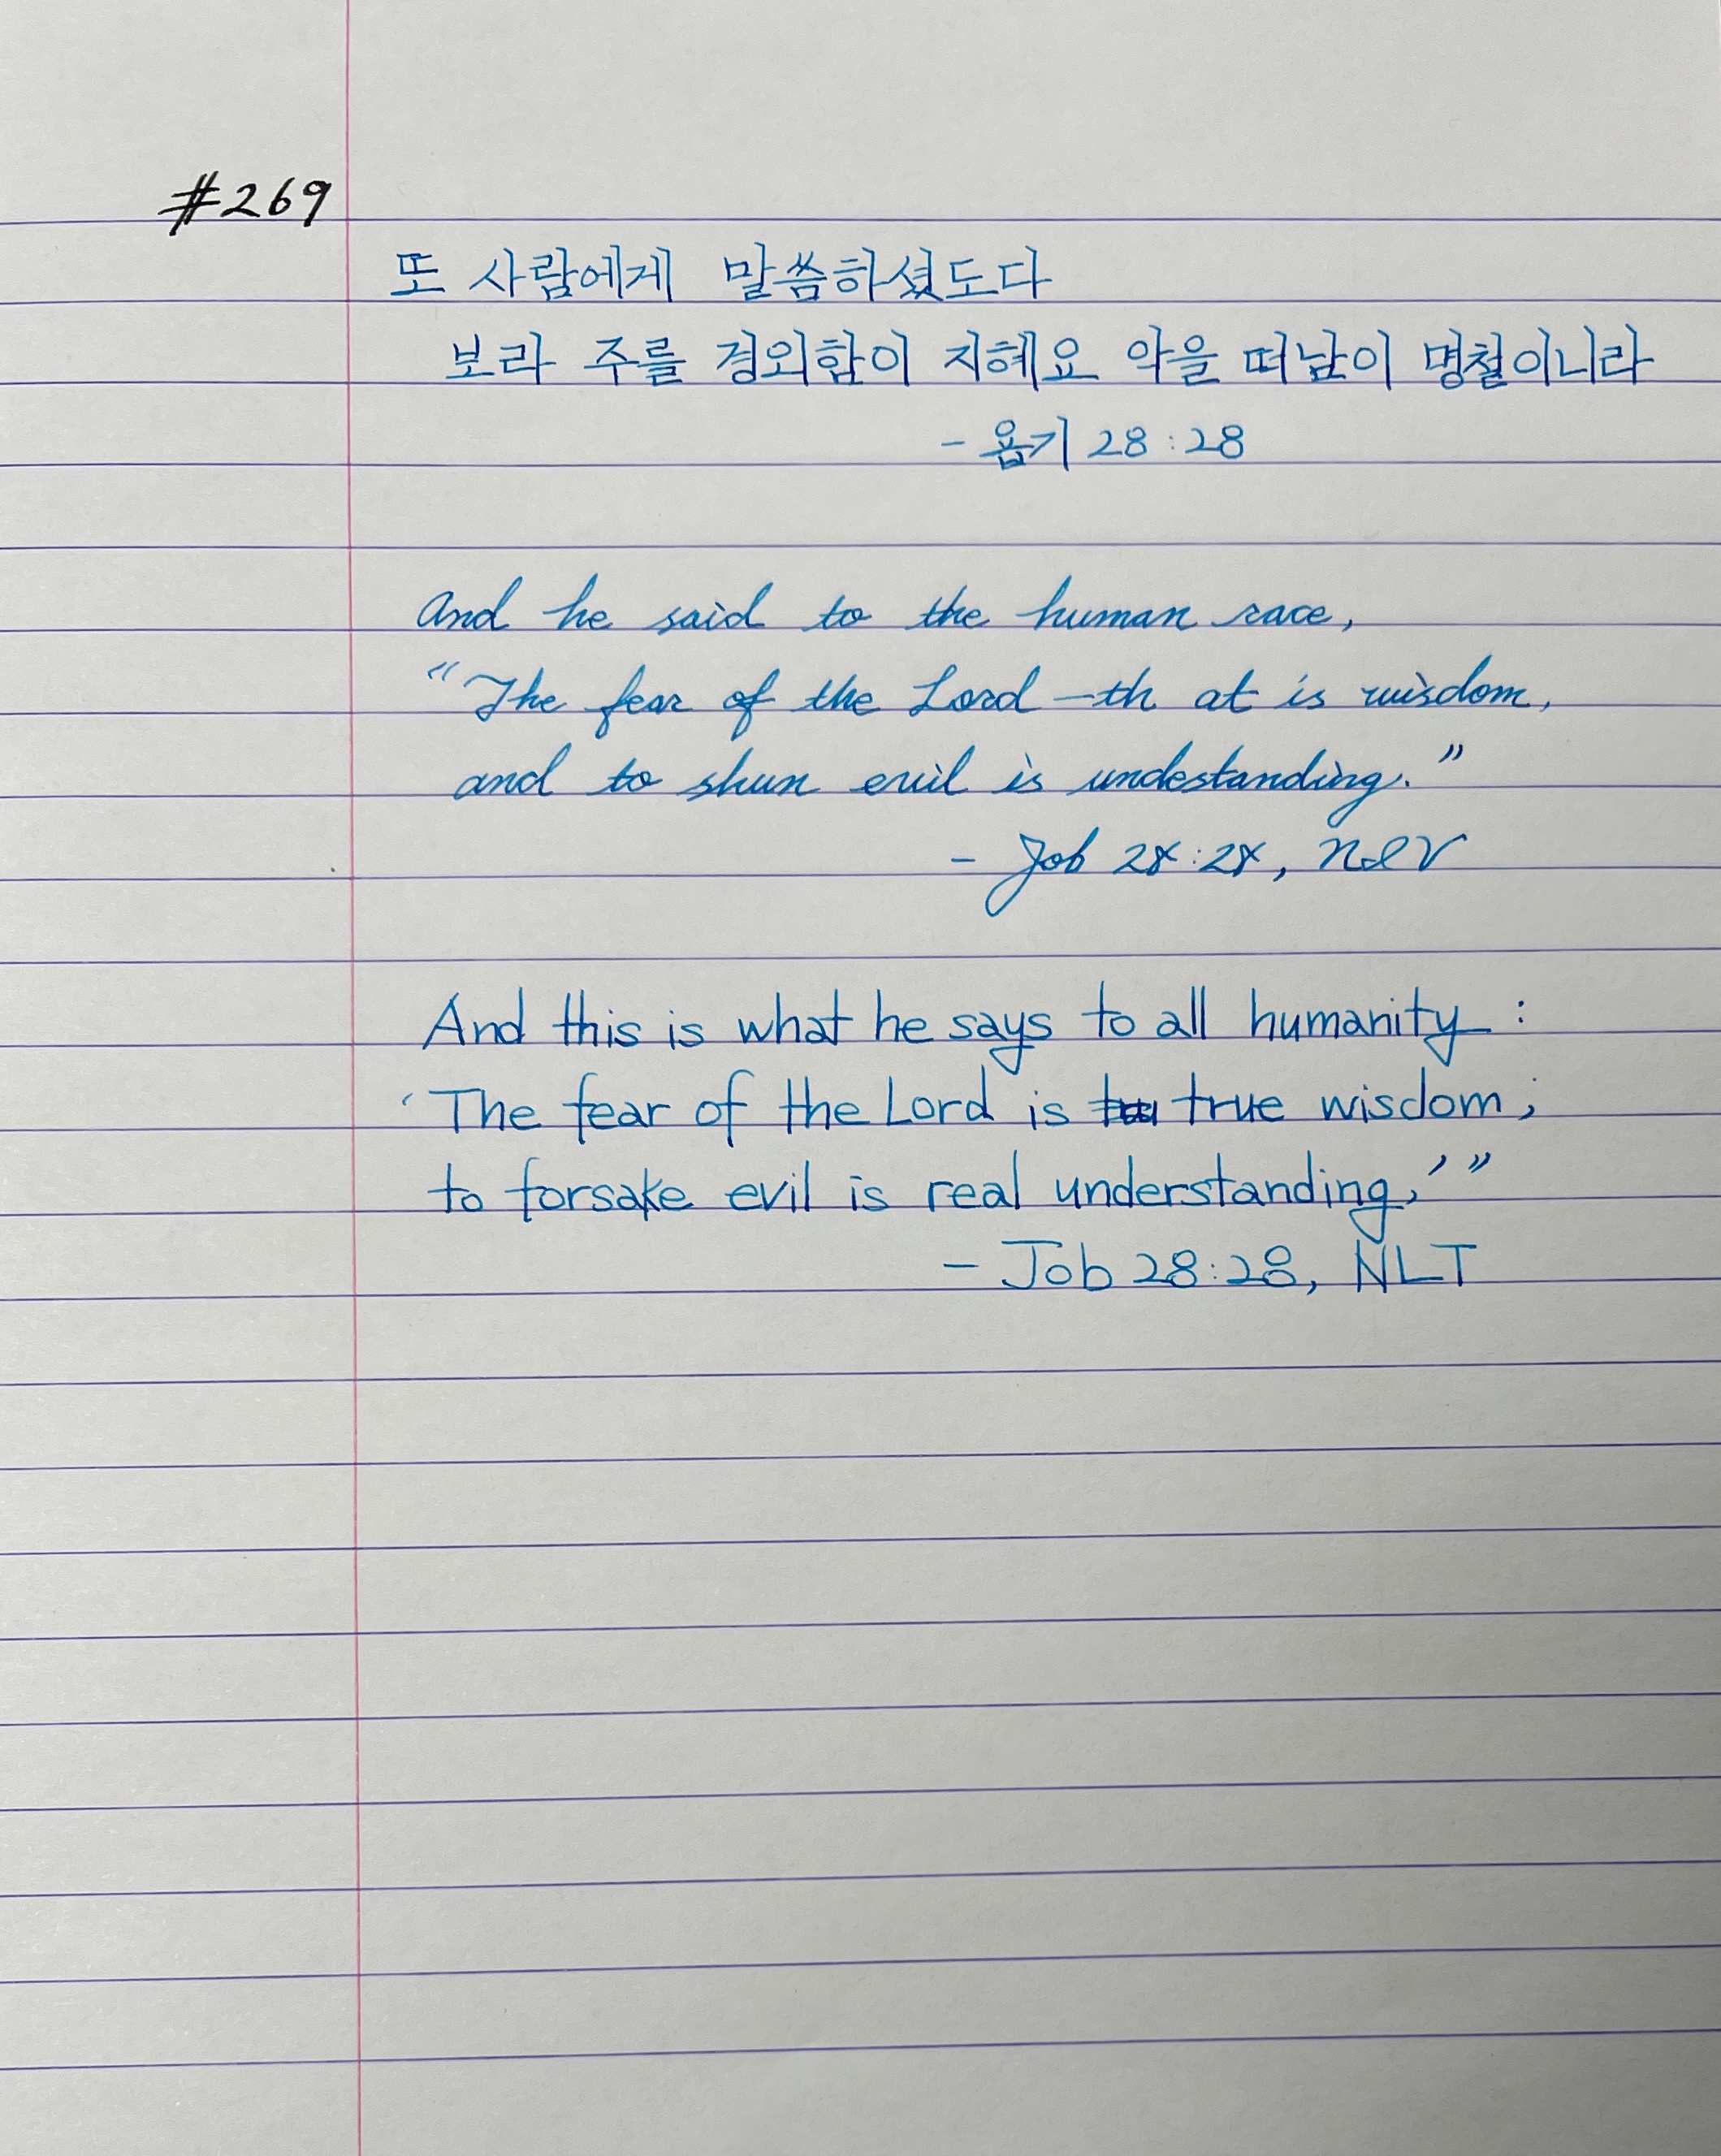 #269
또 사람에게 말씀하셨도다
보라 주를 경외함이 지혜요 악을 떠남이 명철이니라
- 욥기 28:28
And he said to the human race,
"The fear of the Lord —th at is wisdom,
and to shun evil is undestanding."
- Job 28:28, NIV
And this is what he says to all humanity :
'The fear of the Lord is true wisdom;
to forsake evil is real understanding.'"
- Job 28:28, NLT